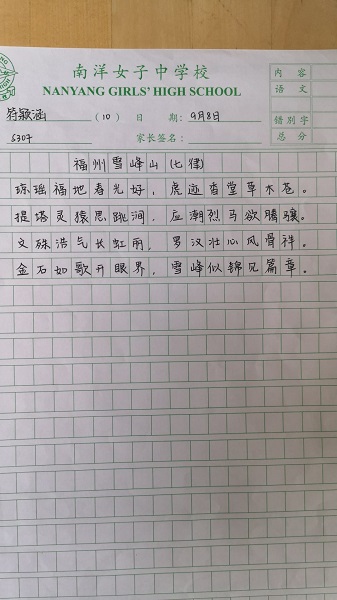 南洋女子中学校
NANYANG GIRLS' HIGH SCHOOL
内 容
语 文
错别字
总 分
符颖涵 (10) 日 期: 9月8日
S304 家长签名:
福州雪峰山(七律)
琼瑶福地春光好,虎迹香堂草木苍。
提塔灵猿思跳涧,应潮烈马欲腾骧。
文殊浩气长虹丽,罗汉壮心风骨祥。
金石如歌开眼界,雪峰似锦见篇章。